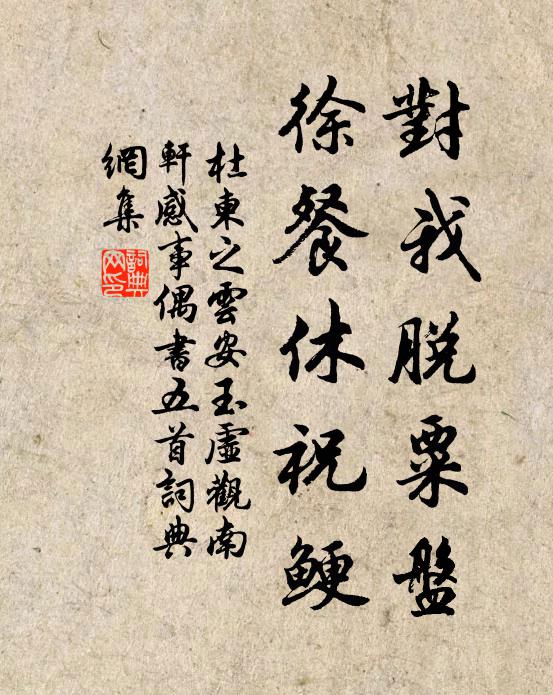 對我脱粟盤
徐餐休祝鯁
杜東之雲安玉虛觀南
軒感事偶書五首詞典
網集
詞典
网印